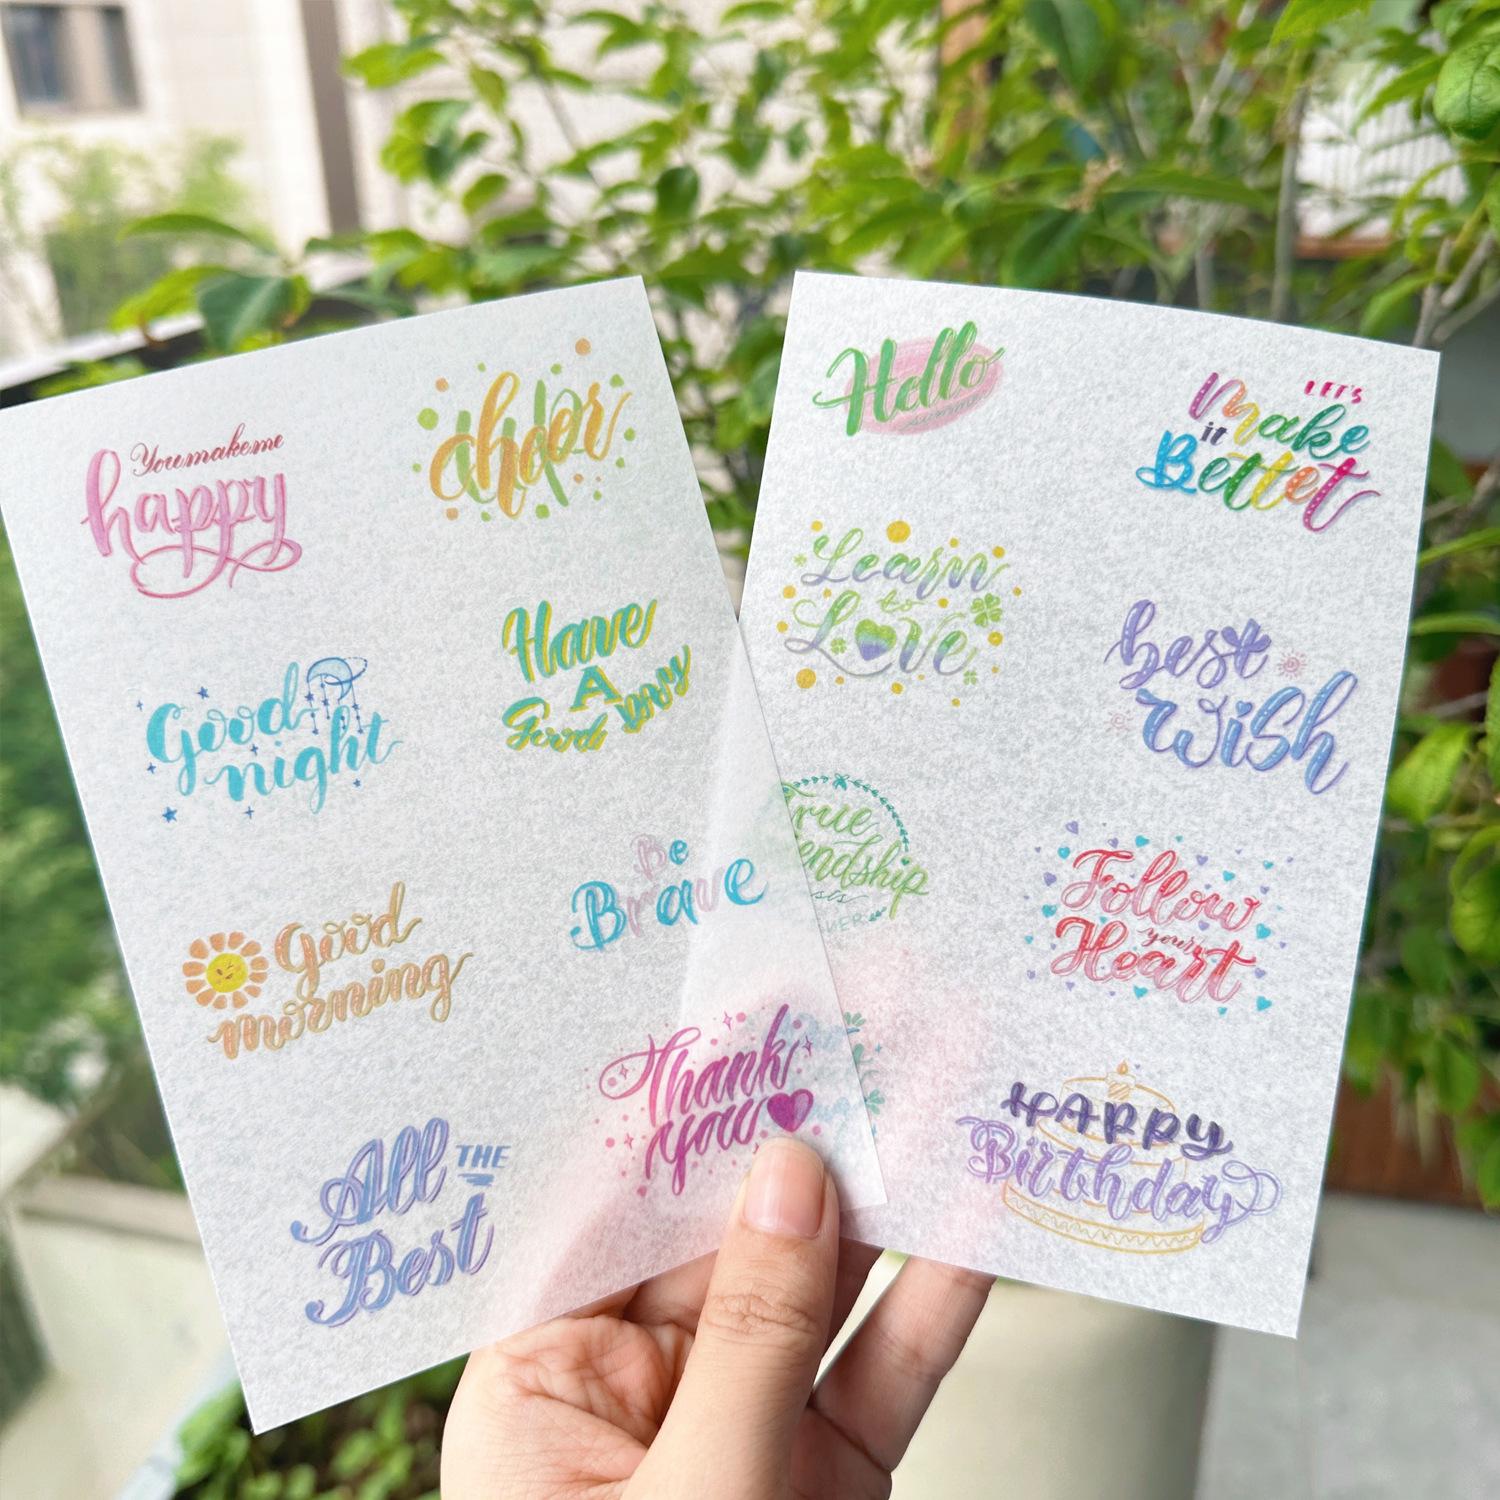 You make me
happy
cheer
Good
night
Have
A
Good Day
Good
morning
Be
Brave
All THE
Best
Thank
you
Hello
summer
LET'S
Make
it
Better
Learn
to
Love
best
wish
True
endship
Follow
your
Heart
HAPPY
Birthday